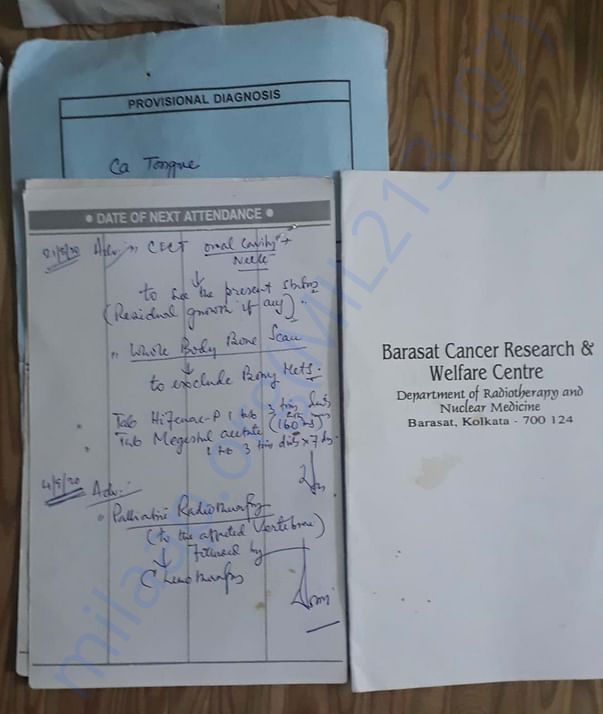 PROVISIONAL DIAGNOSIS
Ca Tongue
• DATE OF NEXT ATTENDANCE •
Adv:- CECT oral cavity +
Neck
to see the present status
(Residual growth if any)
" Whole Body Bone Scan
to exclude Bony Mets.
Tab Hifenac-P 1 tab 3 tims daily
Tab Megestrol acetate (160 mg)
1 tab 3 tims daily x 7 ds.
4/9/20 Adv:-
Palliative Radiotherapy
(to the affected Vertebrae)
Followed by
Chemotherapy
Barasat Cancer Research &
Welfare Centre
Department of Radiotherapy and
Nuclear Medicine
Barasat, Kolkata - 700 124
milaap.org(MIL213107)